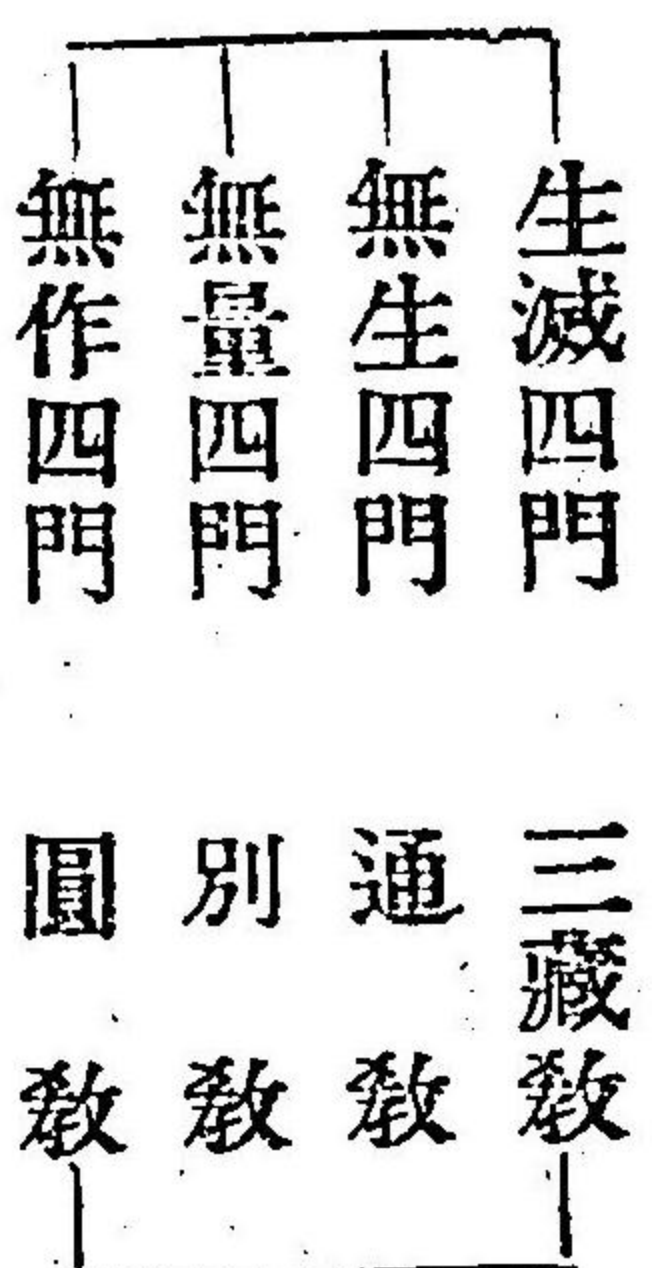 生滅四門 三藏教
無生四門 通教
無量四門 別教
無作四門 圓教